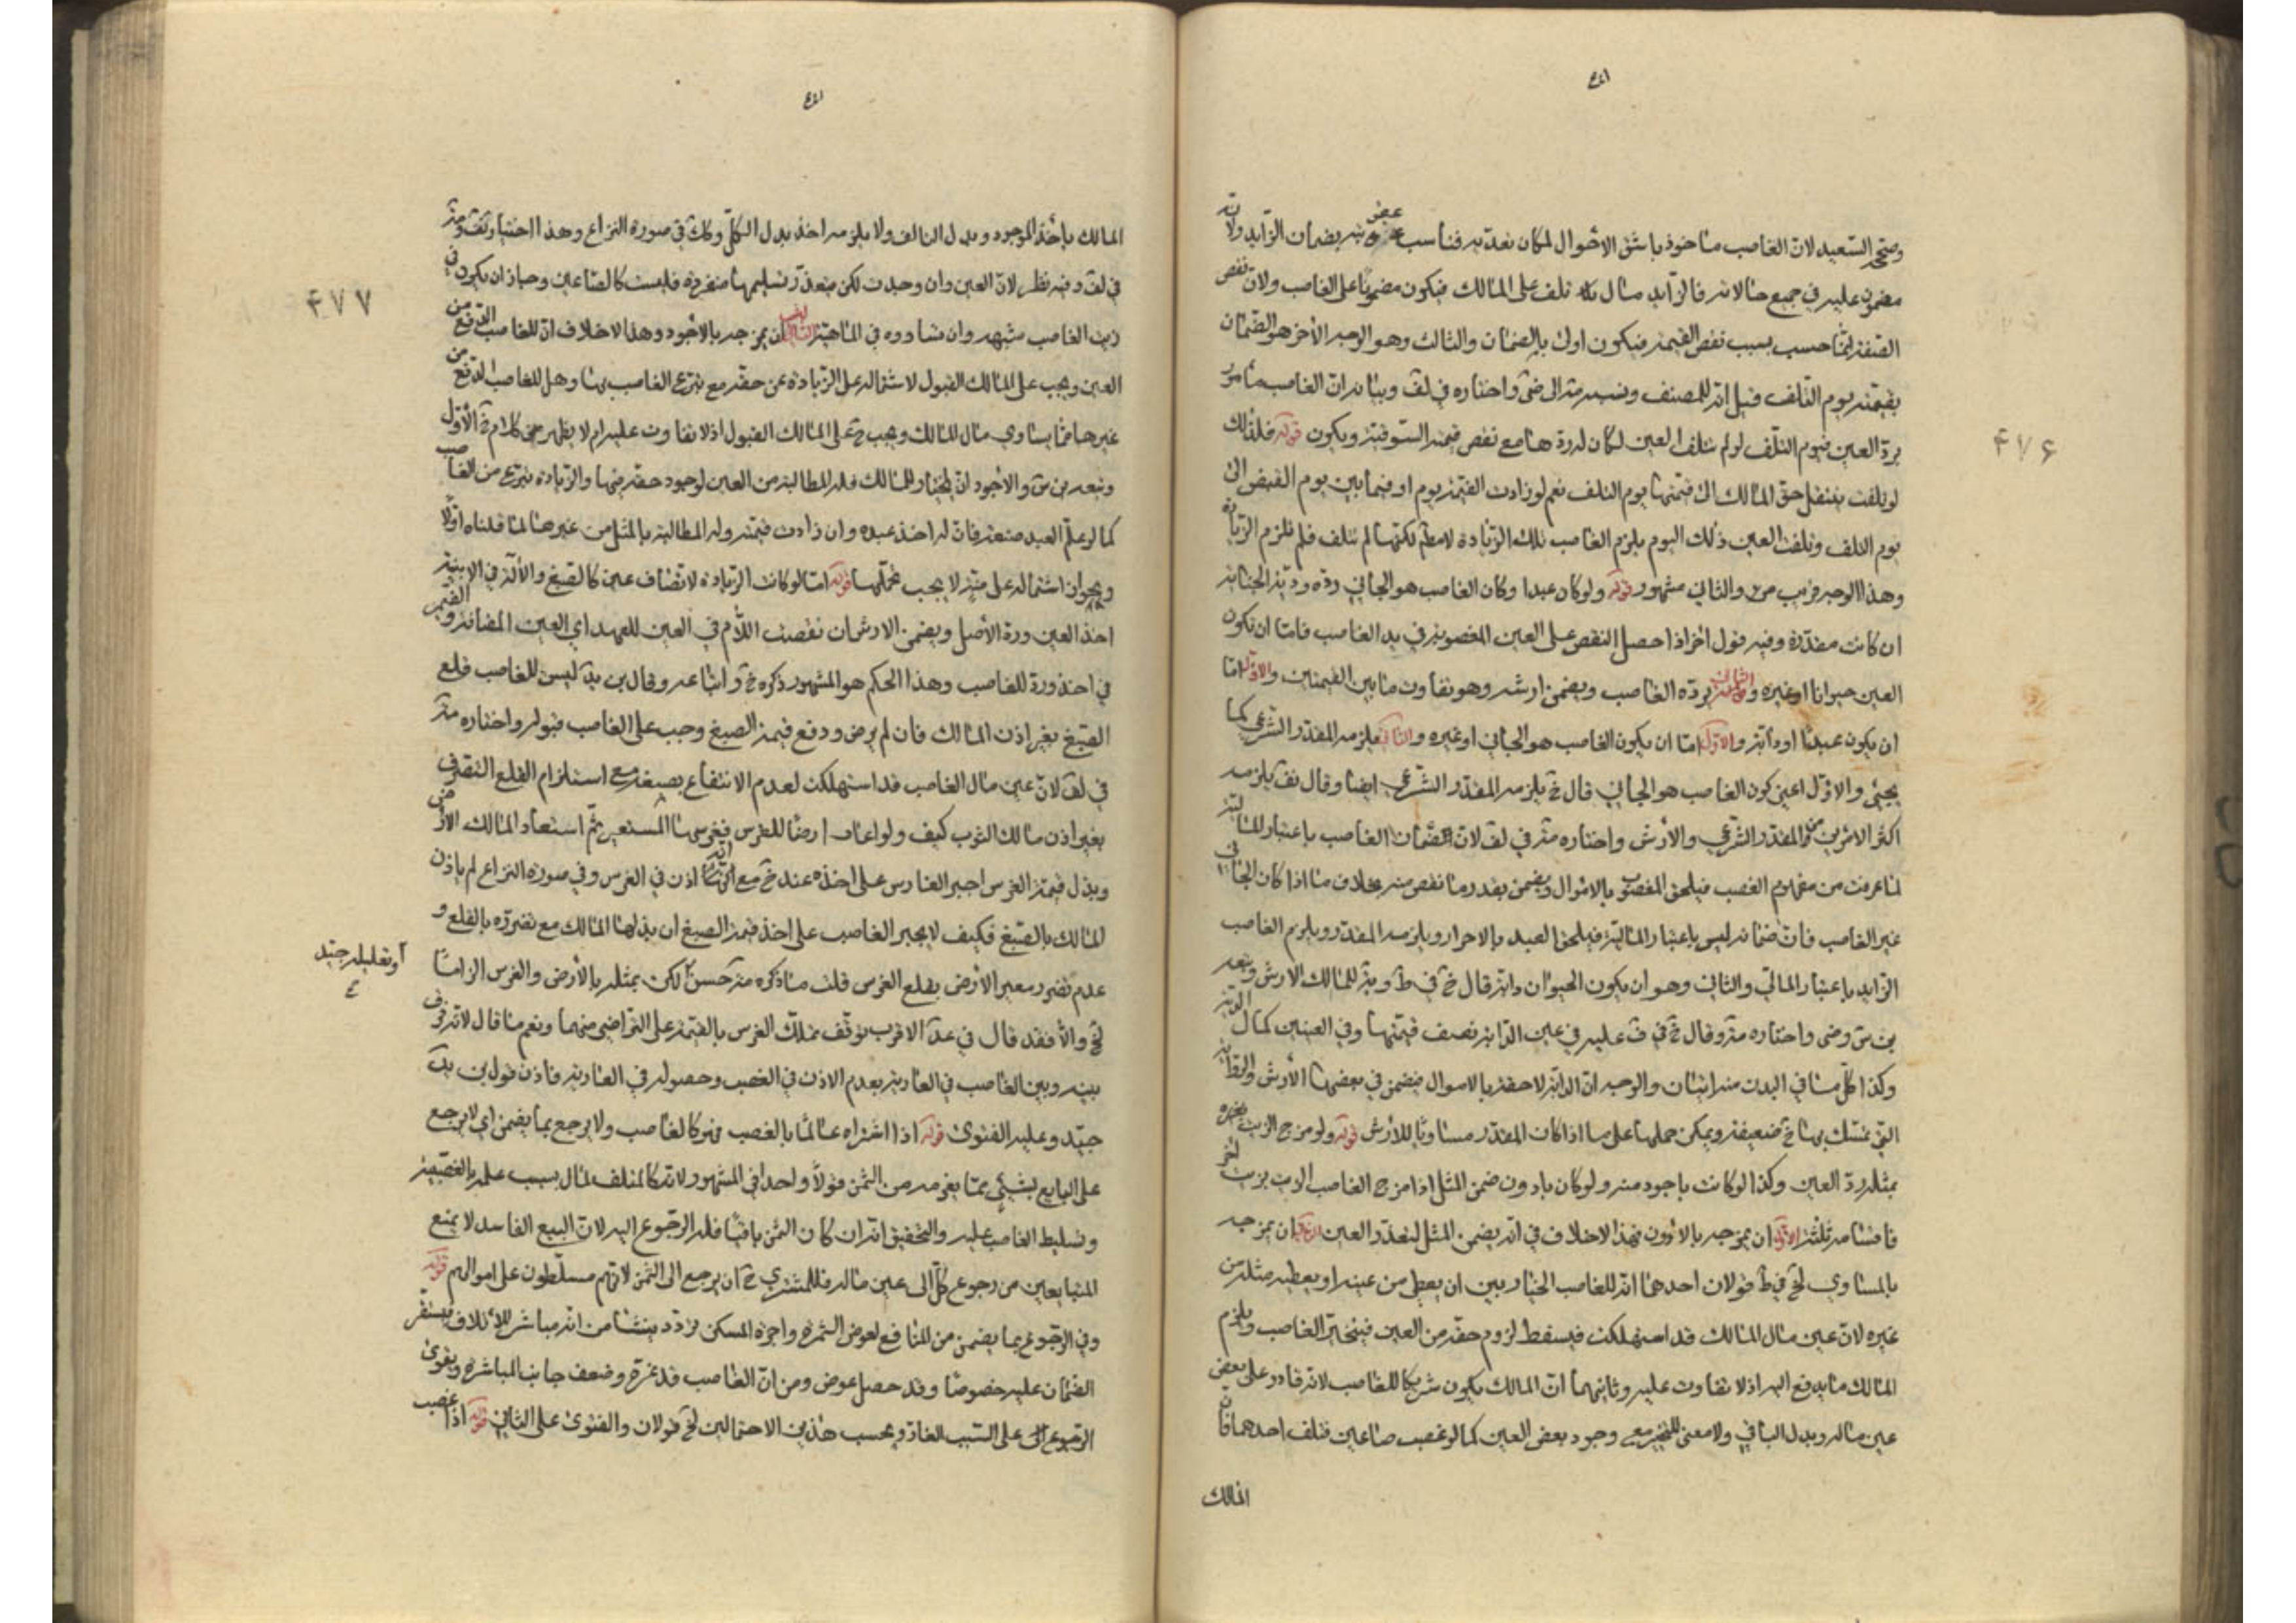 وصححه السعيد لان الغاصب ماخوذ باشق الاحوال لمكان تعديه فناسب عقوبته بضمان الزايد ولانه
مضمون عليه في جميع حالاته فالزايد مال تلف على المالك فيكون مضمونا على الغاصب ولان نقص
الصفة بسبب نقص القيمة فيكون اولى بالضمان والثالث وهو الوجه الآخر هو الضمان
بقيمته يوم التلف قيل انه للمصنف ونسبه الى واختاره في لف وبيانه ان الغاصب مأمور
برد العين فيوم التلف لو لم تتلف العين لكان له ردها مع نقص قيمته السوقية ويكون قوله فلذلك
لو تلفت ينتقل حق المالك الى قيمتها يوم التلف نعم لو زادت القيمة يوم او فيما بين يوم القبض الى
يوم التلف وتلفت العين ذلك اليوم يلزم الغاصب تلك الزيادة لكنها لم تتلف فلم تلزم الزيادة
وهذا الوجه قريب والثاني مشهور قوله ولو كان عبدا وكان الغاصب هو الجاني رده ودية الجناية
ان كانت مقدرة وفيه قول آخر اذا حصل النقص على العين المغصوبة في يد الغاصب فاما ان تكون
العين حيوانا او غيره والثاني يرده الغاصب ويضمن ارشه وهو تفاوت ما بين القيمتين والاول اما
ان يكون عبدا او دابة والاول اما ان يكون الغاصب هو الجاني او غيره والثاني يلزمه المقدر الشرعي كما
يجيئ والاول اعني كون الغاصب هو الجاني قال خ يلزمه المقدر الشرعي ايضا وقال يلزمه
اكثر الامرين من المقدر الشرعي والأرش واختاره في لف لان ضمان الغاصب باعتبار المالية
لما عرفت من مفهوم الغصب فيلحق المغصوب بالاموال ويضمن بقدر ما نقص منه بخلاف ما اذا كان الجاني
غير الغاصب فان ضمانه ليس باعتبار المالية فيلحق العبد بالاحرار ويلزمه المقدر ويلزم الغاصب
الزايد باعتبار المالي والثاني وهو ان يكون الحيوان دابة قال خ في ط ويه للمالك الارش وتبعه
واختاره وقال خ في عليه في عين الدابة نصف قيمتها وفي العينين كمال القيمة
وكذا كل ما في البدن منه اثنان والوجه ان الدابة لاحقة بالاموال فيضمن في بعضها الأرش والرواية
التي تمسك بها خ ضعيفة ويمكن حملها على ما اذا كان المقدر مساويا للأرش قوله ولو مزج الزيت بغيره
بمثله رد العين وكذا لو كانت باجود منه ولو كان بادون ضمن المثل اذا مزج الغاصب الزيت بزيت آخر
فاقسامه ثلثة الاول ان يمزجه بالادون فهذا لا خلاف في انه يضمن المثل لتعذر العين الثاني ان يمزجه
بالمساوي في ط قولان احدهما انه للغاصب الخيار بين ان يعطي من عينه او يعطيه مثله من
غيره لان عين مال المالك قد استهلكت فيسقط لزوم حقه من العين فيتخير الغاصب ويلزم
المالك ما يدفع اليه اذ لا تفاوت عليه وثانيهما ان المالك يكون شريكا للغاصب لانه قادر على بعض
عين ماله وبدل الباقي ولا معنى للتخيير مع وجود بعض العين كما لو غصب صاعين فتلف احدهما فان
المالك
٤٧۶
المالك يأخذ الموجود وبدل التالف ولا يلزمه اخذ بدل الكل وكك في صورة النزاع وهذا اختيار
في لف وفيه نظر لان العين وان وجدت لكن يتعذر تسليمها منفردة فليست كالصاعين وجاز ان يكون في
زيت الغاصب شبهة وان تساووه في الماهية الثالث ان يمزجه بالاجود وهذا لا خلاف ان للغاصب الدفع من
العين ويجب على المالك القبول لاشتماله على الزيادة عن حقه مع تبرع الغاصب بها وهل للغاصب الدفع من
غيرها مما يساوي مال المالك ويجب ح على المالك القبول اذ لا تفاوت عليه ام لا يظهر من كلام خ الأول
وتبعه والاجود ان الخيار للمالك فله المطالبة من العين لوجود حقه فيها والزيادة تبرع من الغاصب
كما لو علم العبد صنعة فان له اخذ عبده وان زادت قيمته وله المطالبة بالمثل من غيرها لما قلناه اولا
اشتماله على منة لا يجب تحملها قوله اما لو كانت الزيادة لانضياف عين كالصبغ والآلة في الابنية
اخذ العين ورد الأصل ويضمن الارش ان نقصت اللام في العين للعهد اي العين المضافة والضمير
في اخذ ورد للغاصب وهذا الحكم هو المشهور ذكره خ واتباعه وقال ليس للغاصب قلع
الصبغ بغير اذن المالك فان لم يرض ودفع قيمة الصبغ وجب على الغاصب قبوله واختاره
في لف لان عين مال الغاصب قد استهلكت لعدم الانتفاع بصبغه مع استلزام القلع التصرف
بغير اذن مالك الثوب كيف ولو اعار ارضا للغرس فغرسها المستعير ثم استعاد المالك الارض
وبذل قيمة الغرس اجبر الغارس على اخذه عند خ مع انه اذن في الغرس وفي صورة النزاع لم ياذن
المالك بالصبغ فكيف لا يجبر الغاصب على اخذ قيمة الصبغ ان بذلها المالك مع تضرره بالقلع و
عدم تضرر معير الأرض بقلع الغرس قلت ما ذكره حسن لكن يمثله بالأرض والغرس الزاما
والا فقد قال في عد الاقرب توقف تملك الغرس بالقيمة على التراضي منهما ونعم ما قال لانه فرق
بينه وبين الغاصب في العارية بعدم الاذن في الغصب وحصوله في العارية فاذن قول
جيد وعليه الفتوى قوله اذا اشتراه عالما بالغصب فهو كالغاصب ولا يرجع بما يضمن اي لا يرجع
على البايع بشيء مما يغرمه من الثمن قولا واحدا في المشهور لانه كالمتلف لمال بسبب علمه بالغصبية
وتسليط الغاصب عليه والتحقيق انه ان كان الثمن باقيا فله الرجوع اليه لان البيع الفاسد لا يمنع
المتبايعين من رجوع كل الى عين ماله فللمشتري ح ان يرجع الى الثمن لانهم مسلطون على اموالهم قوله
وفي الرجوع بما يضمن من المنافع لعوض الثمرة واجرة المسكن تردد ينشأ من انه مباشر للاتلاف فيستقر
الضمان عليه خصوصا وقد حصل عوض ومن ان الغاصب قد غره وضعف جانب المباشرة ويقوى
الرجوع على السبب الغار وبحسب هذين الاحتمالين قولان والفتوى على الثاني قوله اذا غصب
او تعليله جيد
٤٧٧